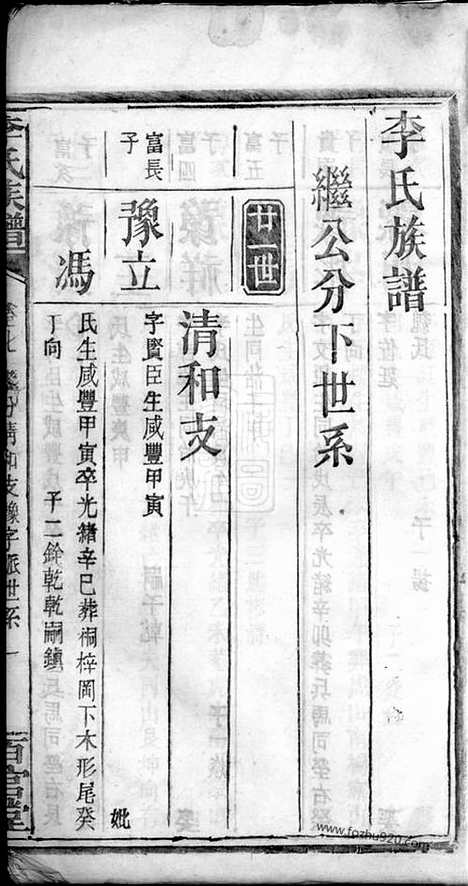 李氏族譜
繼公分下世系
廿一世
清和支
富長
子
豫立
字賢臣生咸豐甲寅
妣
馮
氏生咸豐甲寅卒光緒辛巳葬桐梓岡下木形尾癸
丁向
子二銓乾乾嗣鎮
李氏族譜
清和支豫字派世系
一
www.fozhu920.com